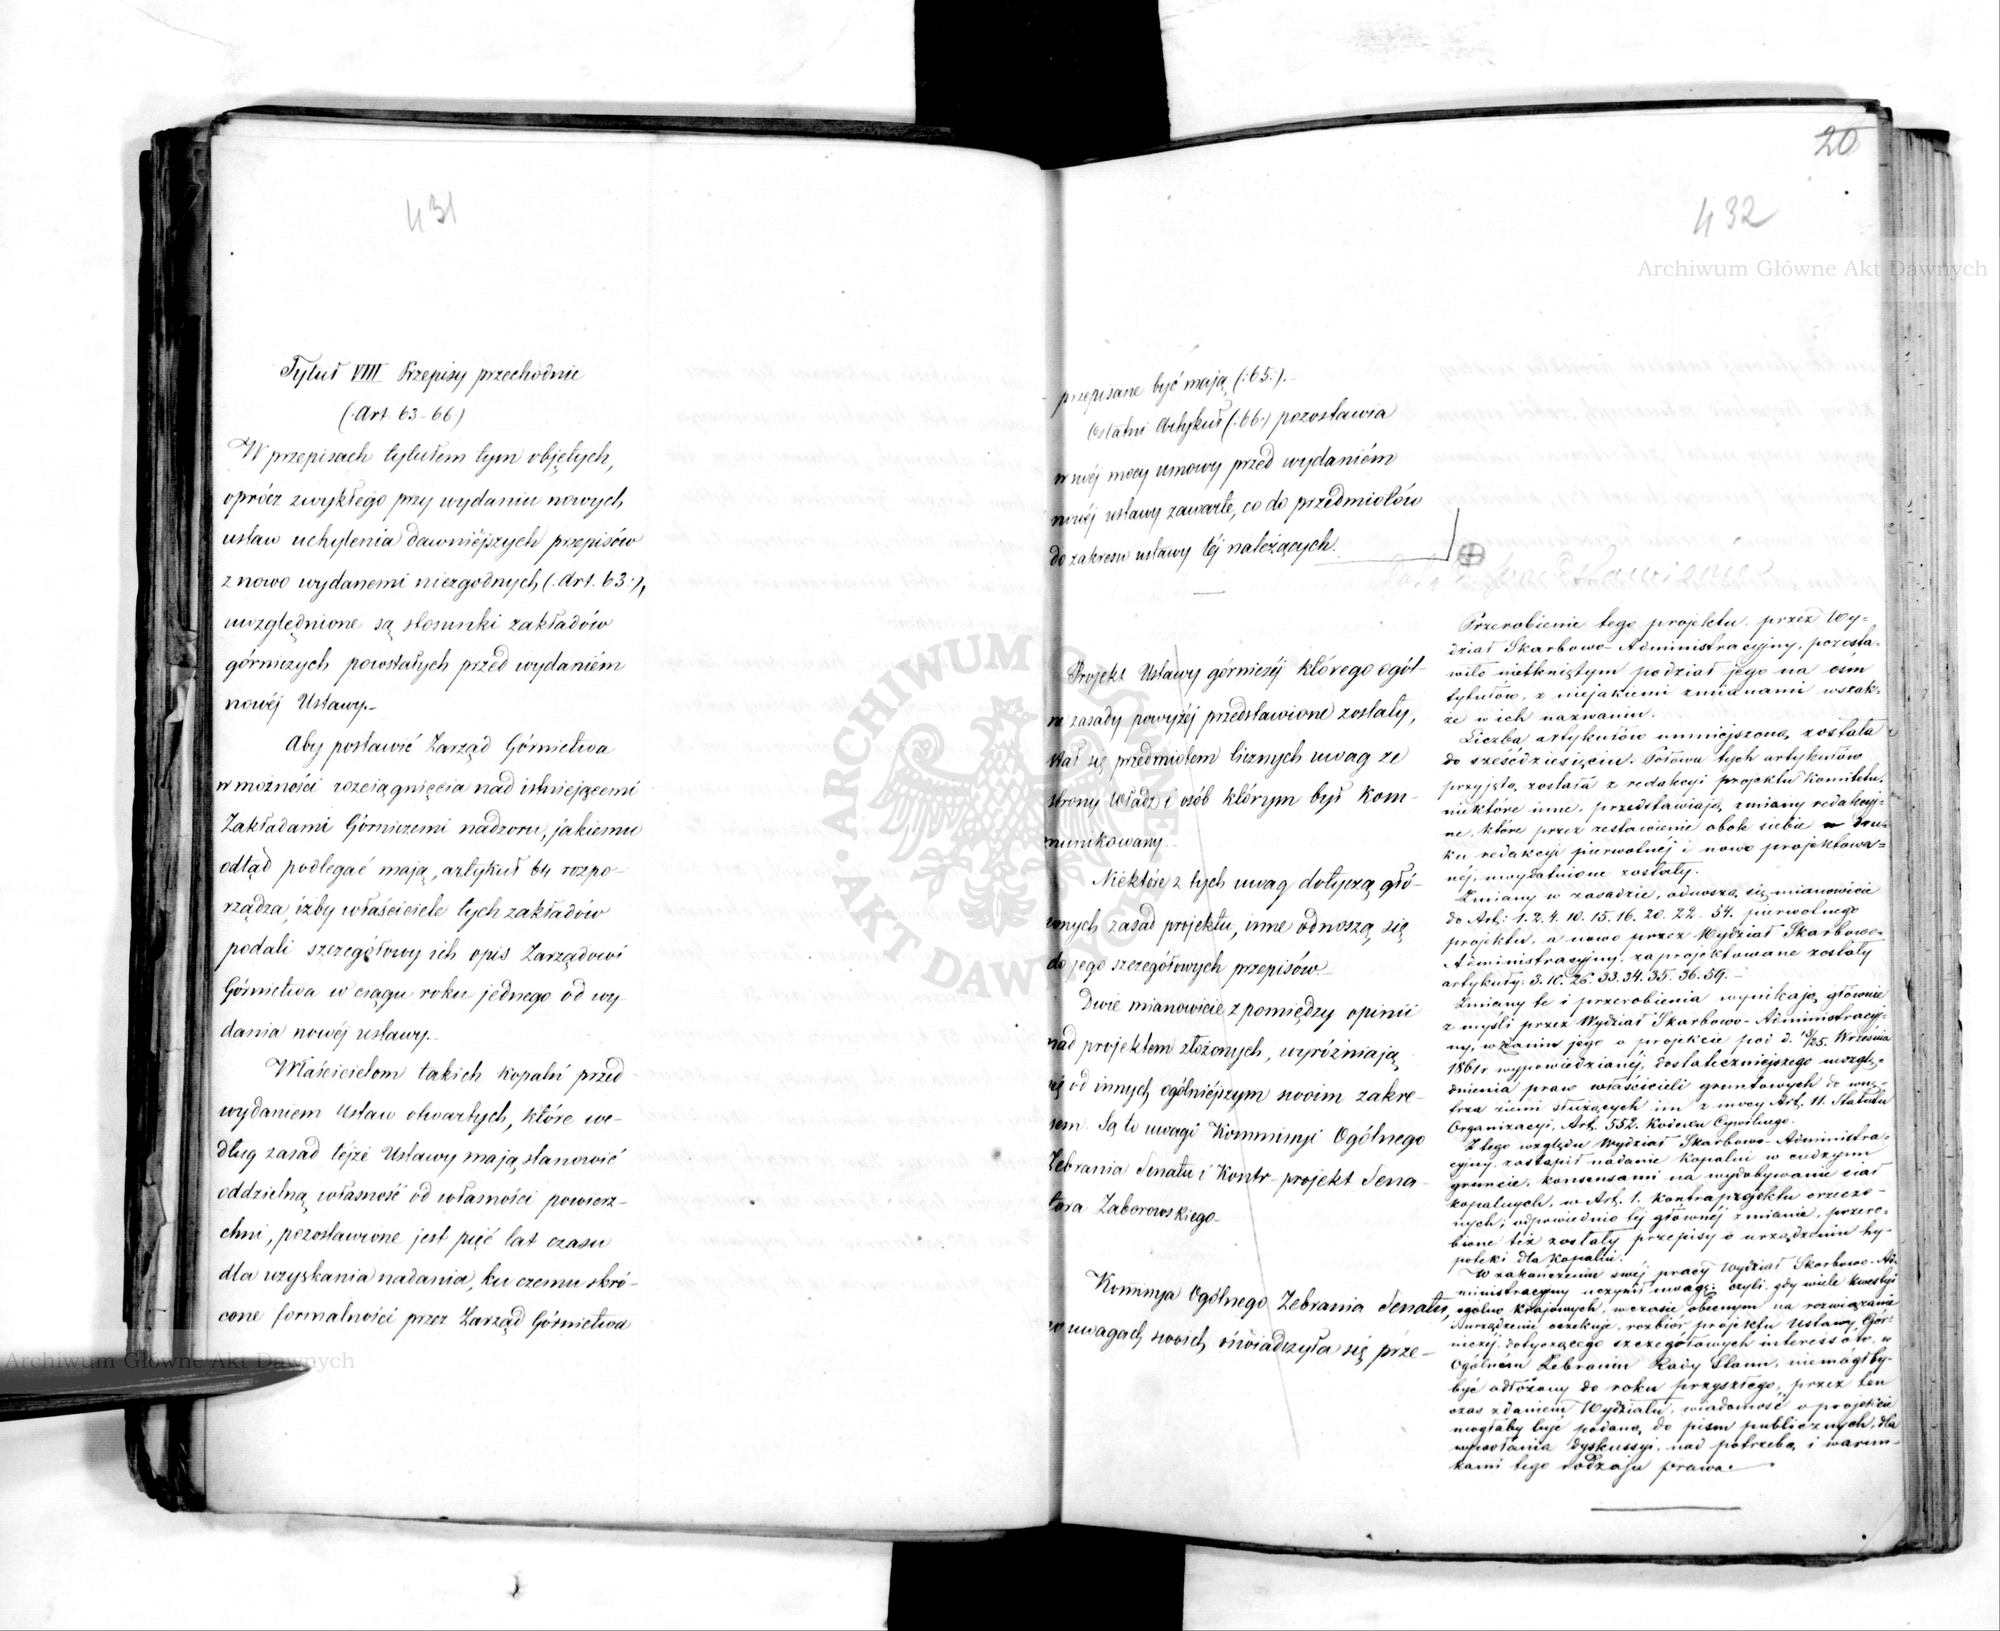 431
Tytuł VIII Przepisy przechodnie
(Art. 63-66)
W przepisach tytułem tym objętych,
oprócz zwykłego przy wydaniu nowych
ustaw uchylenia dawniejszych przepisów
z nowo wydanemi niezgodnych (. Art. 63.),
uwzględnione są stosunki zakładów
górniczych powstałych przed wydaniém
nowéj Ustawy.-
Aby postawić Zarząd Górnictwa
w możności rozciągnięcia nad istniejącemi
Zakładami Górniczemi nadzoru, jakiemu
odtąd podlegać mają, artykuł 64 rozpo-
rządza, iżby właściciele tych zakładów
podali szczegółowy ich opis Zarządowi
Górnictwa w ciągu roku jednego od wy-
dania nowéj ustawy.-
Właścicielom takich kopalń przed
wydaniem Ustaw otwartych, które we-
dług zasad téjże Ustawy mają stanowić
oddzielną własność od własności powierz-
chni, pozostawione jest pięć lat czasu
dla uzyskania nadania, ku czemu skró-
cone formalności przez Zarząd Górnictwa
20
432
Archiwum Główne Akt Dawnych
przepisane być mają (:65:).-
Ostatni Artykuł (.66.) pozostawia
w swéj mocy umowy przed wydaniém
nowéj ustawy zawarte, co do przedmiotów
do zakresu ustawy téj należących.
Projekt Ustawy górniczéj którego ogól-
ne zasady powyżéj przedstawione zostały,
stał się przedmiotem licznych uwag ze
strony Władz i osób którym był kom-
munikowany.-
Niektóre z tych uwag dotyczą głó-
wnych zasad projektu, inne odnoszą się
do jego szczegółowych przepisów.-
Dwie mianowicie z pomiędzy opinii
nad projektem złożonych, wyróżniają
się od innych ogólniejszym swoim zakre-
sem. Są to uwagi Kommissyi Ogólnego
Zebrania Senatu i Kontr-projekt Sena-
tora Zaborowskiego.
Kommissya Ogólnego Zebrania Senatu,
w uwagach swoich oświadczyła się prze-
Przerobienie tego projektu, przez Wy-
dział Skarbowo-Administracyjny, pozosta-
wiło nietkniętym podział jego na ośm
tytułów, z niejakiemi zmianami wszak-
że w ich nazwaniu.
Liczba artykułów umniejszoną została
do sześćdziesięciu. Połowa tych artykułów
przyjętą została z redakcyi projektu komitetu,
niektóre inne, przedstawiają zmiany redakcyj-
ne, które przez zestawienie obok siebie w dru-
ku redakcyi pierwotnéj i nowo projektowa-
néj, uwydatnione zostały.
Zmiany w zasadzie, odnoszą się mianowicie
do Art: 1. 2. 4. 10. 15. 16. 20. 22. 54. pierwotnego
projektu, a nowo przez Wydział Skarbowo-
Administracyjny, zaprojektowane zostały
artykuły: 3. 10. 26. 33. 34. 35. 36. 59.-
Zmiany te i przerobienia wynikają głównie
z myśli przez Wydział Skarbowo-Administracyj-
ny, w zdaniu jego o projekcie pod d. 13/25 Września
1861 r wypowiedzianéj, dostateczniejszego uwzglę-
dnienia praw właścicieli gruntowych do wnę-
trza ziemi służących im z mocy Art. 11. Statutu
Organizacyi, Art. 552. Kodexu Cywilnego.
Z tego względu Wydział Skarbowo-Administra-
cyjny, zastąpił nadanie kopalni w cudzym
gruncie, konsensami na wydobywanie ciał
kopalnych, w Art. 1. kontraprojektu orzeczo-
nych; odpowiednio téj głównéj zmianie, przero-
bione téż zostały przepisy o urządzeniu hy-
poteki dla kopalni.
W zakończeniu swéj pracy Wydział Skarbowo-Ad-
ministracyjny uczynił uwagę; czyli, gdy wiele kwestyi
ogólno krajowych, w czasie obecnym na rozwiązanie
i urządzenie oczekuje, rozbiór projektu Ustawy Gór-
niczéj, dotyczącego szczegółowych interessów, w
Ogólném Zebraniu Rady Stanu, niemógłby
być odłożony do roku przyszłego, przez ten
czas zdaniem Wydziału, wiadomość o projekcie
mogłaby być podaną do pism publicznych, dla
wywołania dyskussyi, nad potrzebą i warun-
kami tego rodzaju prawa.
Archiwum Główne Akt Dawnych
ARCHIWUM GŁÓWNE AKT DAWNYCH